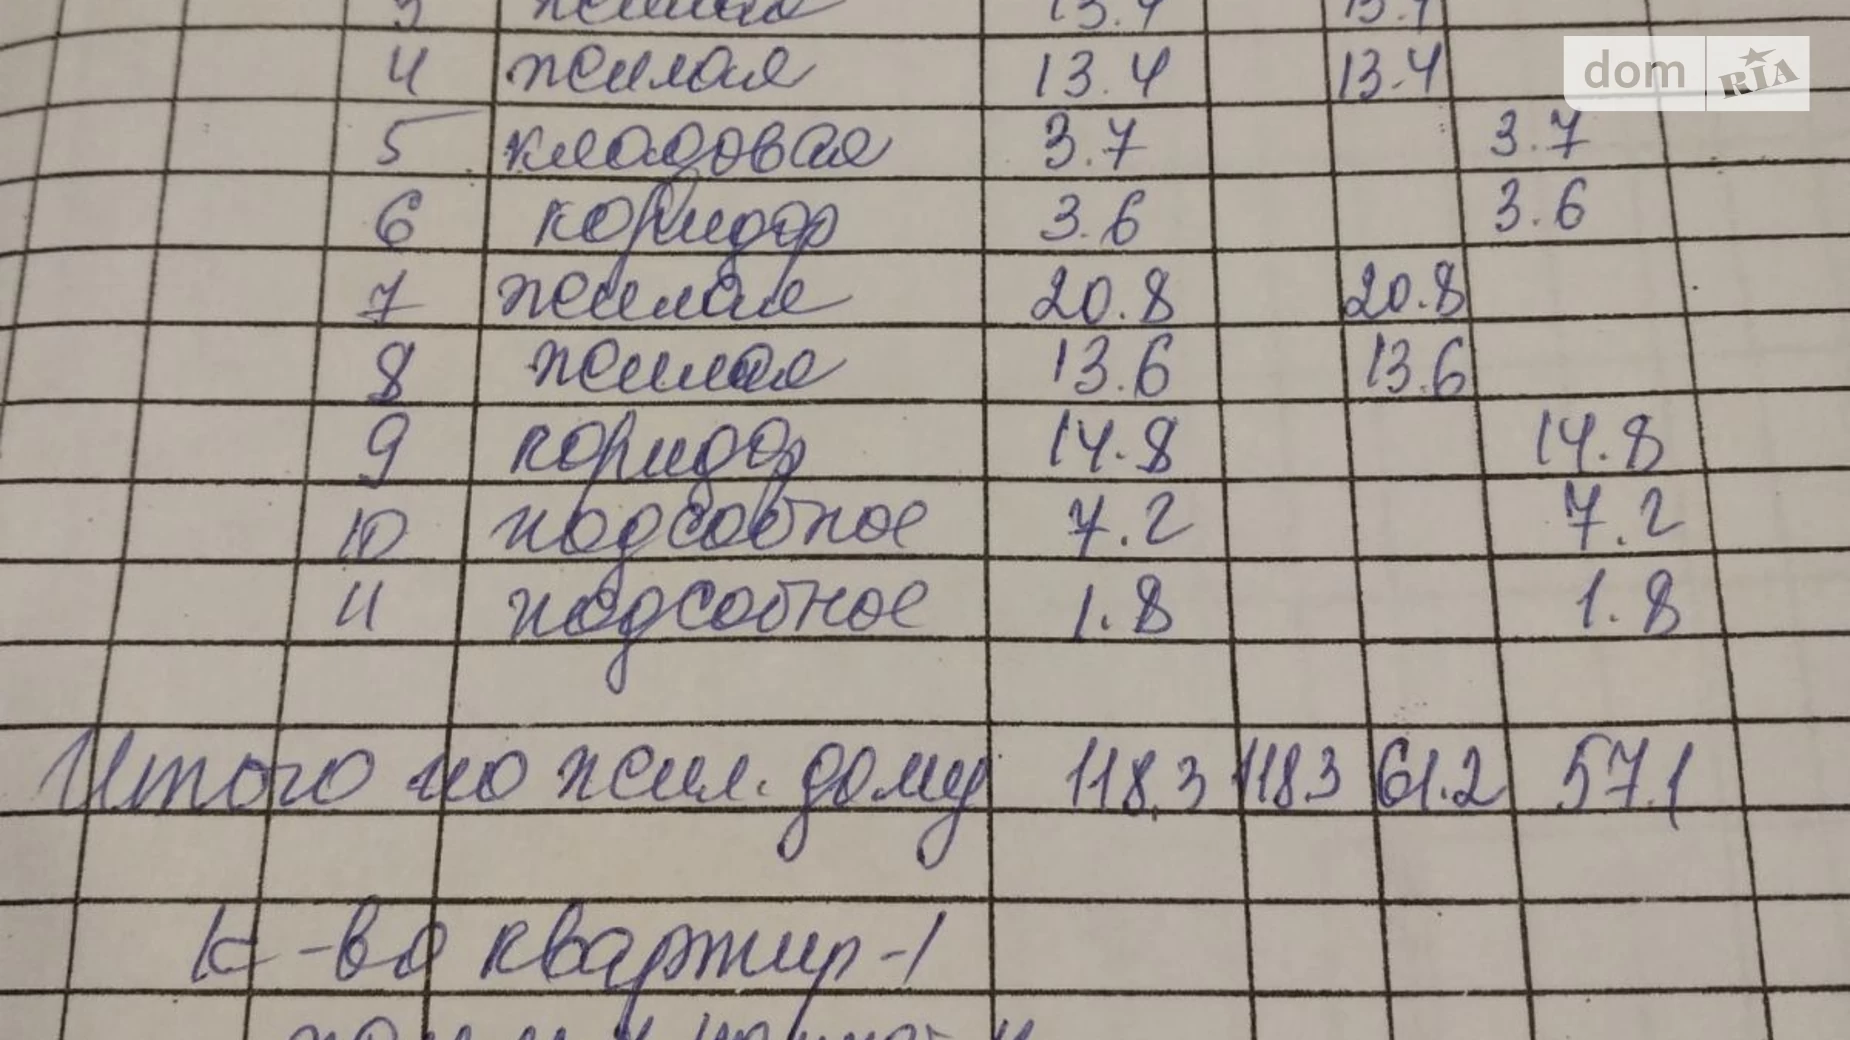 3 жилая 13.4 13.4
dom RIA
4 жилая 13.4 13.4
5 кладовая 3.7 3.7
6 коридор 3.6 3.6
7 жилая 20.8 20.8
8 жилая 13.6 13.6
9 коридор 14.8 14.8
10 подсобное 7.2 7.2
11 подсобное 1.8 1.8
Итого по жил. дому 118,3 118.3 61.2 57.1
К-во квартир-1